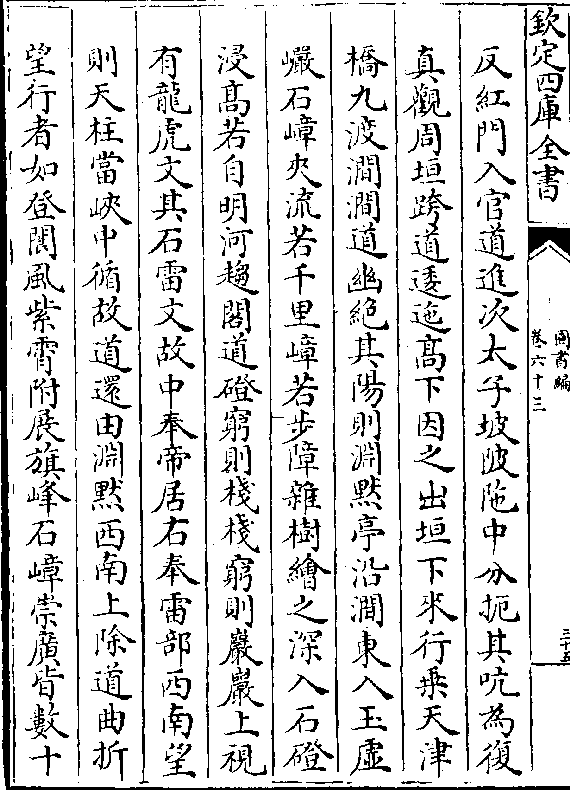 欽定四庫全書
圖書編
卷六十三
三十五
反紅門入官道進次太子坡陂陁中分扼其吭為復
真觀周垣跨道逶迤髙下因之出垣下來行乗天津
橋九渡澗澗道幽絶其陽則淵黙亭沿澗東入玉虚
巗石嶂夾流若千里嶂若步障雜樹繪之深入石磴
浸髙若自明河趨閣道磴窮則棧棧窮則巖巖上視
有龍虎文其石雷文故中奉帝居右奉雷部西南望
則天柱當峽中循故道還由淵黙西南上除道曲折
望行者如登閬風紫霄附展旗峰石嶂崇廣皆數十